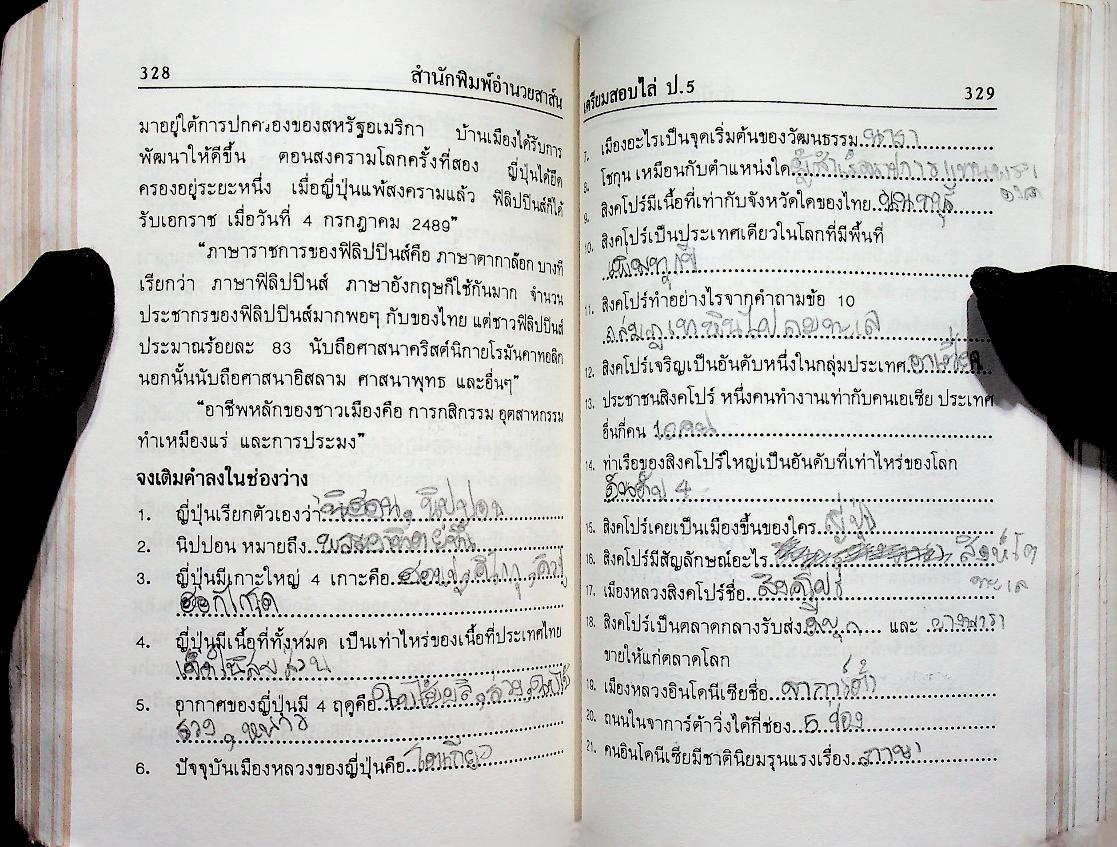 328 สำนักพิมพ์อำนวยสาส์น
มาอยู่ใต้การปกครองของสหรัฐอเมริกา บ้านเมืองได้รับการ
พัฒนาให้ดีขึ้น ตอนสงครามโลกครั้งที่สอง ญี่ปุ่นได้ยึด
ครองอยู่ระยะหนึ่ง เมื่อญี่ปุ่นแพ้สงครามแล้ว ฟิลิปปินส์ก็ได้
รับเอกราช เมื่อวันที่ 4 กรกฎาคม 2489”
“ภาษาราชการของฟิลิปปินส์คือ ภาษาตากาล้อก บางที
เรียกว่า ภาษาฟิลิปปินส์ ภาษาอังกฤษก็ใช้กันมาก จำนวน
ประชากรของฟิลิปปินส์มากพอๆ กับของไทย แต่ชาวฟิลิปปินส์
ประมาณร้อยละ 83 นับถือศาสนาคริสต์นิกายโรมันคาทอลิก
นอกนั้นนับถือศาสนาอิสลาม ศาสนาพุทธ และอื่นๆ”
“อาชีพหลักของชาวเมืองคือ การกสิกรรม อุตสาหกรรม
ทำเหมืองแร่ และการประมง”
จงเติมคำลงในช่องว่าง
1. ญี่ปุ่นเรียกตัวเองว่า นิฮอน, นิปปอน
2. นิปปอน หมายถึง พระอาทิตย์ขึ้น
3. ญี่ปุ่นมีเกาะใหญ่ 4 เกาะคือ
ฮอกไกโด
4. ญี่ปุ่นมีเนื้อที่ทั้งหมด เป็นเท่าไหร่ของเนื้อที่ประเทศไทย
5. อากาศของญี่ปุ่นมี 4 ฤดูคือ ใบไม้ผลิ, ร้อน, ใบไม้
ร่วง, หนาว
6. ปัจจุบันเมืองหลวงของญี่ปุ่นคือ โตเกียว
เตรียมสอบไล่ ป.5 329
7. เมืองอะไรเป็นจุดเริ่มต้นของวัฒนธรรม นารา
8. โชกุน เหมือนกับตำแหน่งใด ผู้สำเร็จราชการแทนพระ
องค์
9. สิงคโปร์มีเนื้อที่เท่ากับจังหวัดใดของไทย นนทบุรี
10. สิงคโปร์เป็นประเทศเดียวในโลกที่มีพื้นที่
เพิ่มทุกปี
11. สิงคโปร์ทำอย่างไรจากคำถามข้อ 10
ถล่มภูเขาหินไปถมทะเล
12. สิงคโปร์เจริญเป็นอันดับหนึ่งในกลุ่มประเทศ อาเซียน
13. ประชาชนสิงคโปร์ หนึ่งคนทำงานเท่ากับคนเอเซีย ประเทศ
อื่นกี่คน 10 คน
14. ท่าเรือของสิงคโปร์ใหญ่เป็นอันดับที่เท่าไหร่ของโลก
อันดับ 4
15. สิงคโปร์เคยเป็นเมืองขึ้นของใคร ญี่ปุ่น
16. สิงคโปร์มีสัญลักษณ์อะไร สิงห์โต
ทะเล
17. เมืองหลวงสิงคโปร์ชื่อ สิงคโปร์
18. สิงคโปร์เป็นตลาดกลางรับส่ง ดีบุก และ ยางพารา
ขายให้แก่ตลาดโลก
19. เมืองหลวงอินโดนีเซียชื่อ จาการ์ต้า
20. ถนนในจาการ์ต้าวิ่งได้กี่ช่อง 5 ช่อง
21. คนอินโดนีเซียมีชาตินิยมรุนแรงเรื่อง ภาษา